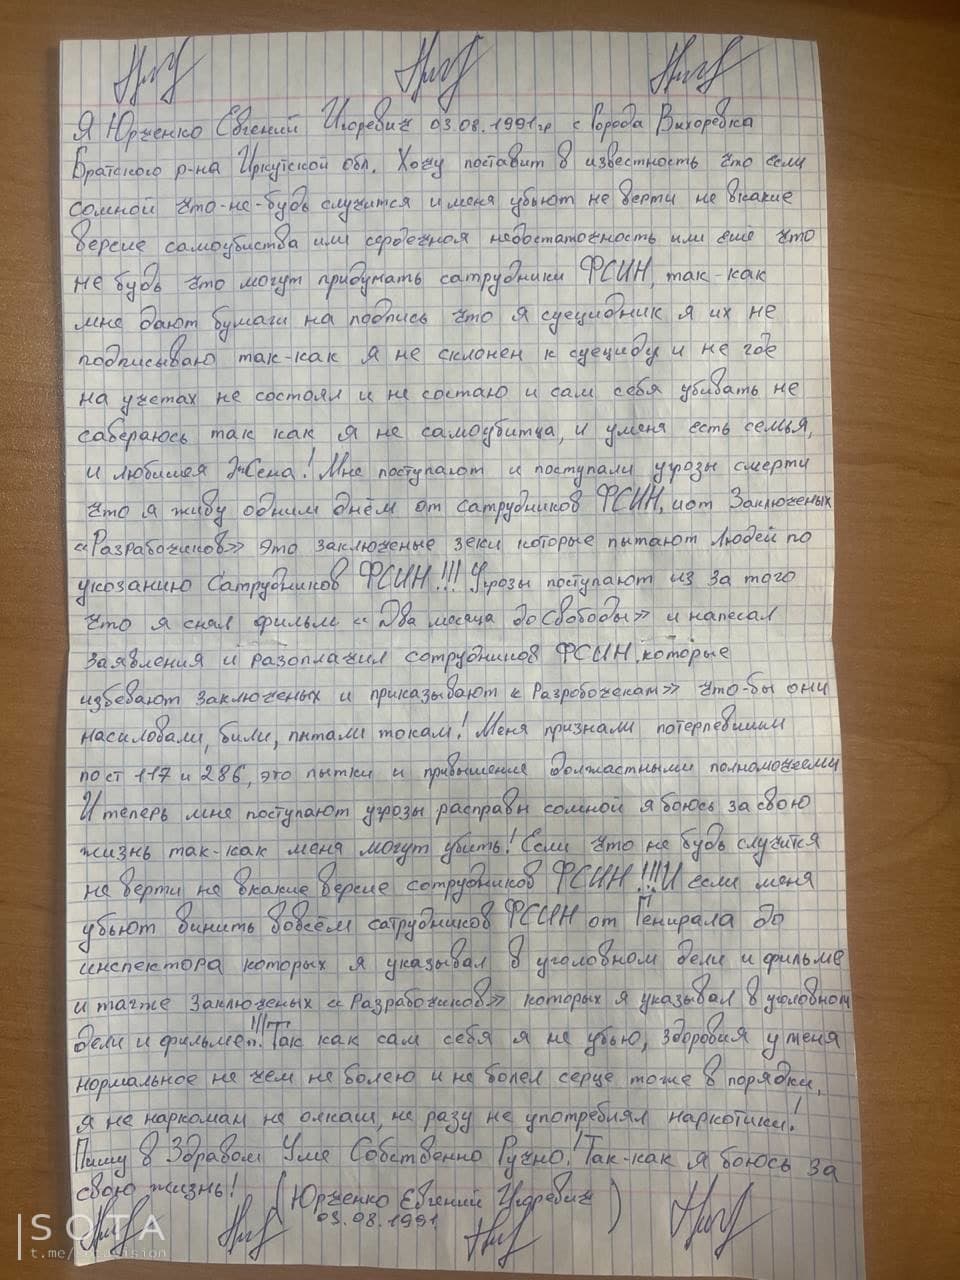 Я Юрченко Евгений Игоревич 03.08.1991гр с Города Вихоревка
Братского р-на Иркутской обл. Хочу поставит в известность что если
сомной что-не-будь случится и меня убьют не верти не вкакие
версие самоубиства или сердечная недостаточность или еше что
не будь что могут придумать сатрудники ФСИН, так-как
мне дают бумаги на подпись что я суецидник я их не
подписываю так-как я не склонен к суециду и не где
на учетах не состоял и не состаю и сам себя убивать не
сабераюсь так как я не самоубитца, и уменя есть семья,
и любимая Жена! Мне поступают и поступали угрозы смерти
что я живу одним днём от сатрудников ФСИН, иот Заключеных
«Разрабочиков» это заключеные зеки которые пытают людей по
укозанию Сатрудников ФСИН!!! Угрозы поступают из за того
что я снял фильм «Два месяца до Свободы» и напесал
Заявления и разоплачил сотрудников ФСИН, которые
избевают Заключеных и приказывают «Разробочекам» что-бы они
насиловали, били, пытали током! Меня признали потерпевшим
по ст 117 и 286, это пытки и привышение должастными полномочеями
И теперь мне поступают угрозы расправы сомной я боюсь за свою
жизнь так-как меня могут убить! Если что не будь случится
не верти не вкакие версие сотрудников ФСИН!!! И если меня
убьют винить вовсём сатрудников ФСИН от Генирала до
инспектора которых я указывал в уголовном дели и фильме
и также Заключеных «Разрабочиков» которых я указывал в уголовном
дели и фильме!!! Так как сам себя я не убью, здоровия уменя
нормальное не чем не болею и не болел серце тоже в порядки,
я не наркоман не олкаш, не разу не употреблял наркотики!
Пишу в Здравом Уме Собственно Ручно! Так-как я боюсь за
свою жизнь! (Юрченко Евгений Игоревич)
03.08.1991
SOTA
t.me/sotavision